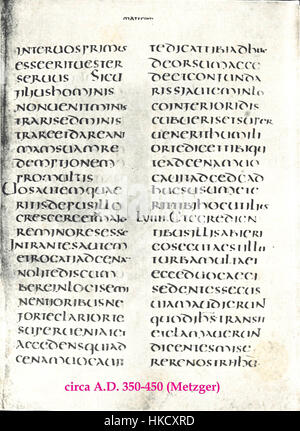 MATTHEUM
INTERUOSPRIMUS
ESSEERITUESTER
SERUUS SICU
FILIUSHOMINIS
NONUENITMINIS
TRARISEDMINIS
TRAREETDAREANI
MAMSUAMRE
DEMPTIONEM
PROMULTIS
UOSAUTEMQUAE
RITISDEPUSILLO
CRESCEREETMAIO
REMINORESESSE
INTRANTESAUTEM
ETROGATIADCENA
NOLITEDISCUM
BEREINLOCISEMI
NENTIORIBUSNE
FORTECLARIORTE
SUPERUENIATET
ACCEDENSQUIAD
CENAMUOCAUIT
TEDICATTIBIADHUC
DEORSUMACCE
DEETCONFUNDA
RISSIAUTEMINLO
COINFERIORIDIS
CUBUERISETSUPER
UENERITHUMILI
ORTEDICETTIBIQUI
TEADCENAMUO
CAUITADCEDEAD
HUCSUSUMETE
RITTIBIHOCUTILIUS
LVIIII ETEGREDIEN
TIBUSILLISABIERI
COSECUTAESTILLU
TURBAMULTAET
ECCEDUOCAECI
SEDENTESSECUS
UIAMAUDIERUN
QUODIHSTRANSIT
ETCLAMAUERUN
DICENTESMISE
RERENOSTRI
circa A.D. 350-450 (Metzger)
alamy stock photo
HKCXRD
www.alamy.com